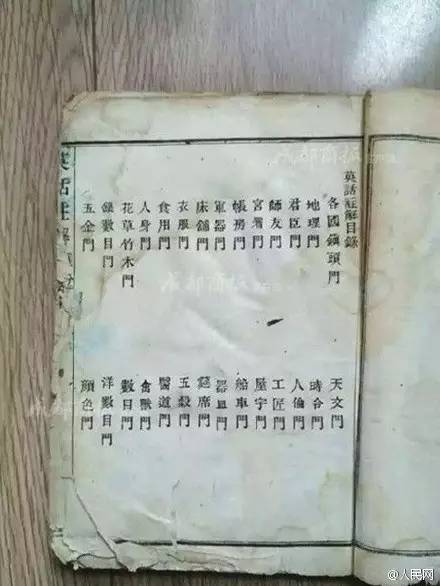 英話註解目錄
各國鎮頭門 天文門
地理門 時令門
君臣門 人倫門
師友門 工匠門
宮署門 屋宇門
帳房門 船車門
軍器門 器皿門
床舖門 筵席門
衣服門 五穀門
食用門 醫道門
人身門 禽獸門
花草竹木門 數目門
銀數目門 洋數目門
五金門 顏色門
英話註解
成都商报
成都商报
成都商报
@人民网